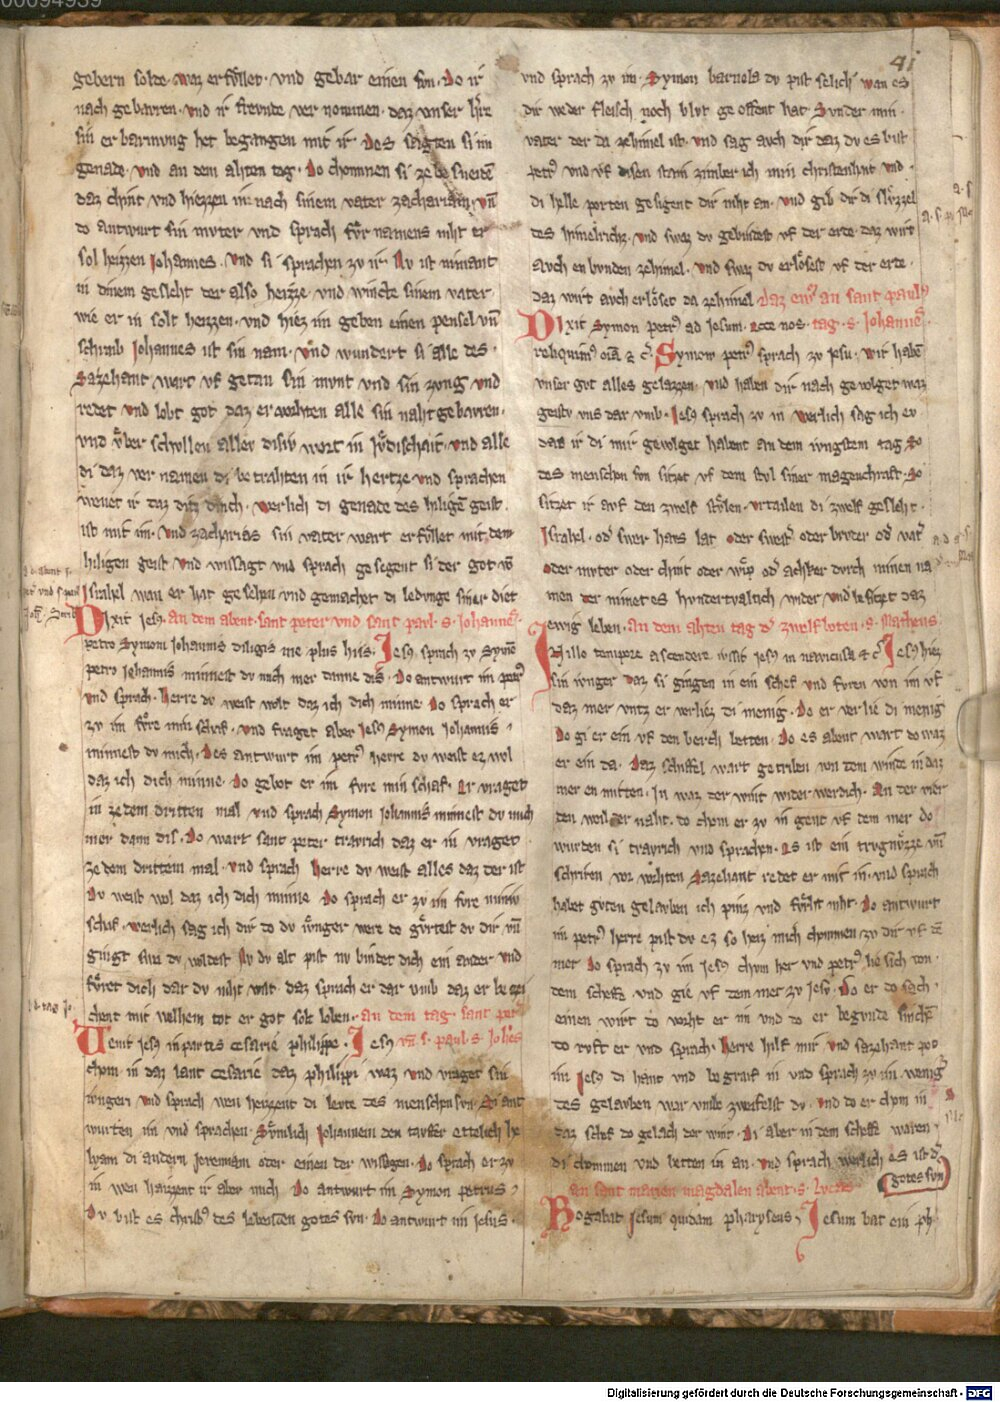 00094939
41
gebern solde. waz erfvllet. vnd gebar einen svn. Do ir
nach gebavren. vnd ir frevnde ver nomen. daz vnser h̄re
sin er barmvng het begangen mit ir. Des sagten si im
genade. vnd an dem ahten tag. Do chommen si ze be sneidē
daz chint vnd hiezzen in nach sinem vater zachariam. vn̄
do antwurt sin mvter vnd sprach. fvr namens niht er
sol heizzen Johannes. vnd si sprachen zv ir. Nv ist nimant
in dinem gesleht der also heizze. vnd wincte sinem vater
wie er in solt heizzen. vnd hiez im geben einen pensel vn̄
schraib Johannes ist sin nam. vnd wundert si alle des.
Sazehant wart vf getan sin mvnt vnd sin zvng vnd
redet vnd lobt got daz er vorhten alle sin nahtgebavren.
vnd vber schvllen aller disiv wort in Jvdischait. vnd alle
di daz ver namen di betrahten in ir hertze vnd sprachen
wenet ir daz ditz chinch. werlich di genade des hiligē geist
ist mit im. vnd zacharias sin vater wart er fvllet mit dem
hiligen geist vnd wissagt vnd sprach ge segent si der got vō
Israhel wan er hat ge sehen vnd gemachet di ledvnge siner diet
Dixit Jesꝰ. an dem abent. sant peter vnd sant pavl. s. Johannē.
petro Symon Johannis diligis me plus hiis. Jesꝰ sprach zv Symō
petro Johannis minnest dv mich mer danne dis. Do antwurt im petꝰ
vnd sprach. Herre dv weist wolt daz ich dich minne. Do sprach er
zv im fvre min schaf. vnd fraget aber Jesꝰ Symon Johannis
minnest dv mich. Des antwurt im petrꝰ herre dv weist ez wol
daz ich dich minne. Do gebot er im fvre min schaf. Er vraget
in zedem dritten mal vnd sprach Symon Johannis minnest dv mich
mer dann dis. Do wart sant peter travrich daz er in vraget
ze dem drittem mal. vnd sprach herre dv weist alles daz der ist
Dv weist wol daz ich dich minne. Do sprach er zv im fvre miniv
schaf. werlich sag ich dir do dv ivnger were do gvrtest dv dir vn̄
gingt swa dv woldest Nv dv alt pist nv bindet dich ein ander vnd
fvret dich dar dv niht wilt. daz sprach er dar vmb daz er be zei
chent mit welhem tot er got solt loben. an dem tag. sant petꝰ
Venit Jesꝰ in partes cesarie philippe. Jesꝰ vn̄. s. pavl. s. Johēs
chom in daz lant Cesarie daz philippi waz vnd vraget sin
ivnger vnd sprach wen heizzent di levte des menschen svn. Si ant
wurten im vnd sprachen. Svmlich Johannem den tavffer ettelich he
lyam di andern Jeremiam oder einen der wissagen. Do sprach er zv
in wen haizzent ir aber mich Do antwurt im Symon petrus
Dv bist es christꝰ des lebenden gotes svn. Do antwurt im Jesus.
vnd sprach zv im. Symon barnola dv pist selich wan es
dir weder fleisch noch blvt ge offent hat Svnder min
vater der da zehimel ist. vnd sag avch dir daz dv es bist
petrꝰ vnd vf disen stain zimber ich min christenhait vnd
di helle porten gesigent dir niht an. vnd gib dir di slvzzel
des himelrichs. vnd swaz dv gebindest vf der erde. daz wirt
avch en bvnden zehimel. vnd swaz dv erlosest vf der erde.
daz wirt avch erloset da zehimel daz ewꝰ an sant pavlꝰ
Dixit Symon petrꝰ ad Jesum. ecce nos. tag. s. Johannē.
reliquimꝰ oīa & c̄. Symon petrꝰ sprach zv Jesu. wir habē
vnser gvt alles gelazzen. vnd haben dir nach gevolget waz
geistv vns dar vmb. Jesꝰ sprach zv in werlich sag ich ev
daz ir di mir gevolget habent an dem ivngstem tag So
des menschen svn sitzet vf dem stvl siner magenchraft. So
sitzet ir avf den zwelf stvlen. vrtailen di zwelf gesleht.
Israhel. odꝰ swer havs lat oder swestꝰ oder brvder odꝰ vatꝰ
oder mvter oder chint oder wīp odꝰ achker dvrch minen na
men der nimet es hvndertvaltich wider vnd besitzet daz
ewig leben. an dem ahten tag dꝰ zwelfboten. s. Matheus
In illo tempore ascendere iussit Jesꝰ in navicula & c̄ Jesꝰ hiez
sin ivnger daz si gingen in ein schef vnd fvren von im vf
daz mer vntz er verliez di menig. Do er verlie di menig
do gi er ein vf den berch betten. Do es abent wart do waz
er ein da. Daz schiffel wart getriben von dem winde in daz
mer en mitten. In waz der wint wider werdich. An der vier
den weil der naht. do chom er zv in gent vf dem mer do
wurden si travrich vnd sprachen. Es ist ein trvgnvzze vn̄
schriren vor vorhten Sazehant redet er mit in. vnd sprach
habet gvten gelavben ich pinz vnd fvrht niht. Do antwurt
im petrꝰ herre pist dv ez so heiz mich chommen zv dir vf dē
mer Do sprach zv im Jesꝰ chom her vnd petrꝰ lie sich von
dem scheff vnd gie vf dem mer zv Jesv. Do er do sach
einen wint do vorht er im vnd do er begvnde sinchē
do rvft er vnd sprach. Herre hilf mir vnd sazehant pot
im Jesꝰ di hant vnd begraif in vnd sprach zv im wenig
des gelavben war vmbe zweifelst dv. vnd do er chom in
daz schef do gelach der wint. Di aber in dem scheff waren
di chommen vnd betten in an. vnd sprach werlich es ist dꝰ
gotes svn
an sant marien magdalen abent. s. Lvcas
Rogabat Jesum quidam pharyseus, Jesum bat ein ph
Digitalisierung gefördert durch die Deutsche Forschungsgemeinschaft - DFG